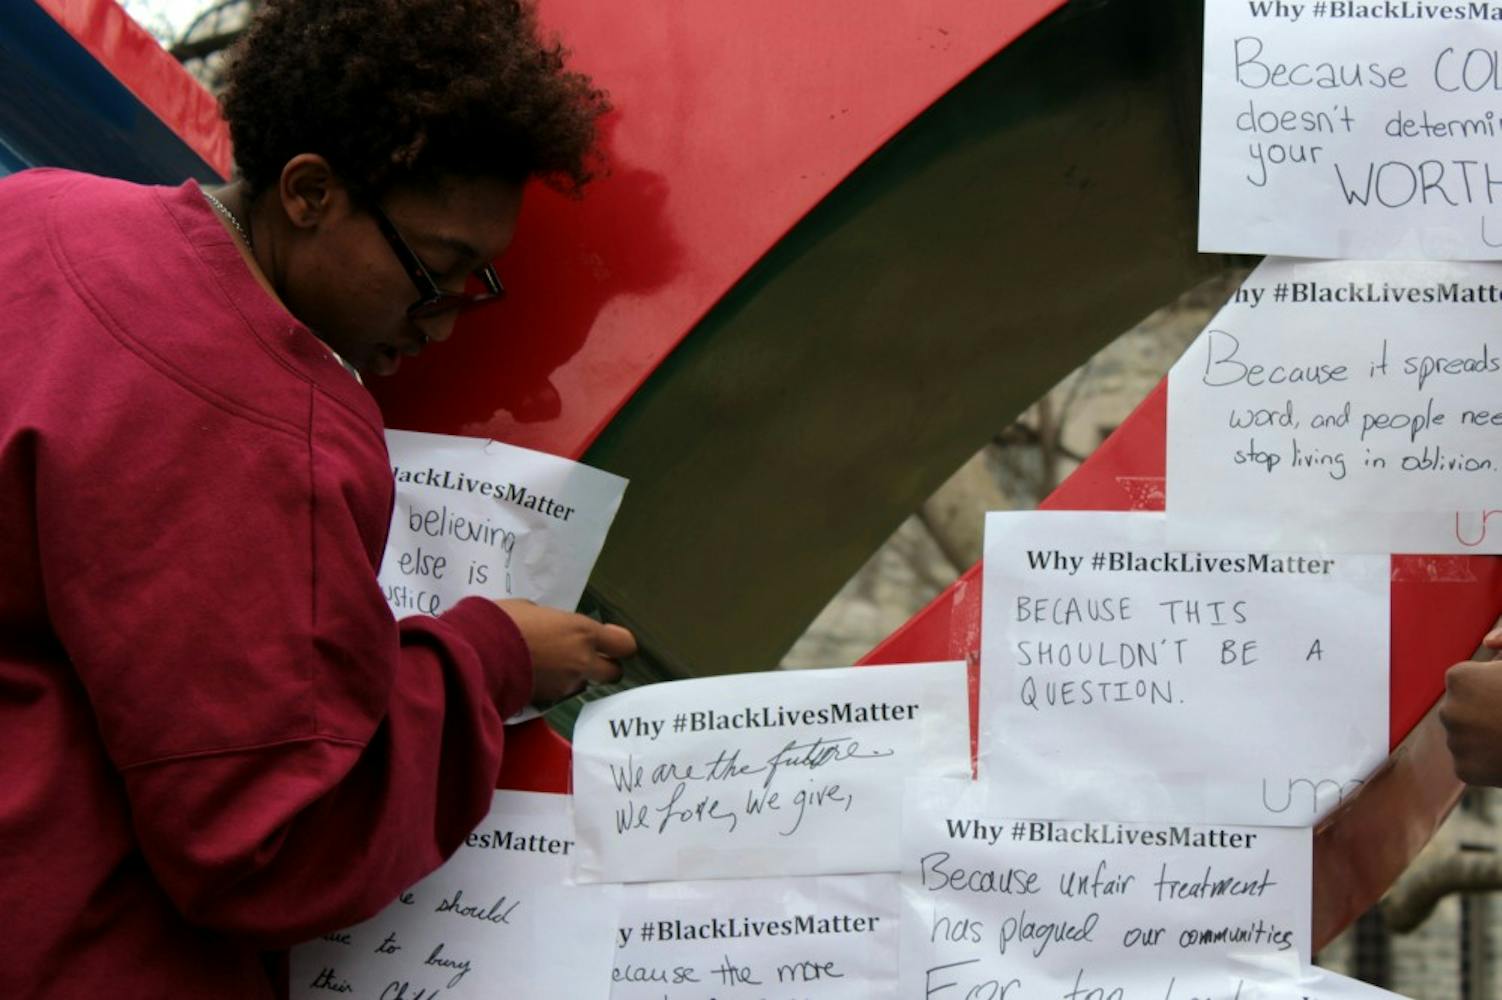 Why #BlackLivesMa
Because COL
doesn't determi
your
WORTH
hy #BlackLivesMatte
Because it spreads
word, and people nee
stop living in oblivion.
lackLivesMatter
believing
else is a
ustice
Why #BlackLivesMatter
BECAUSE THIS
SHOULDN'T BE A
QUESTION.
um
Why #BlackLivesMatter
We are the future.
We love, we give,
esMatter
e should
to bury
their Child
y #BlackLivesMatter
ecause the more
Why #BlackLivesMatter
Because unfair treatment
has plagued our communities
For too